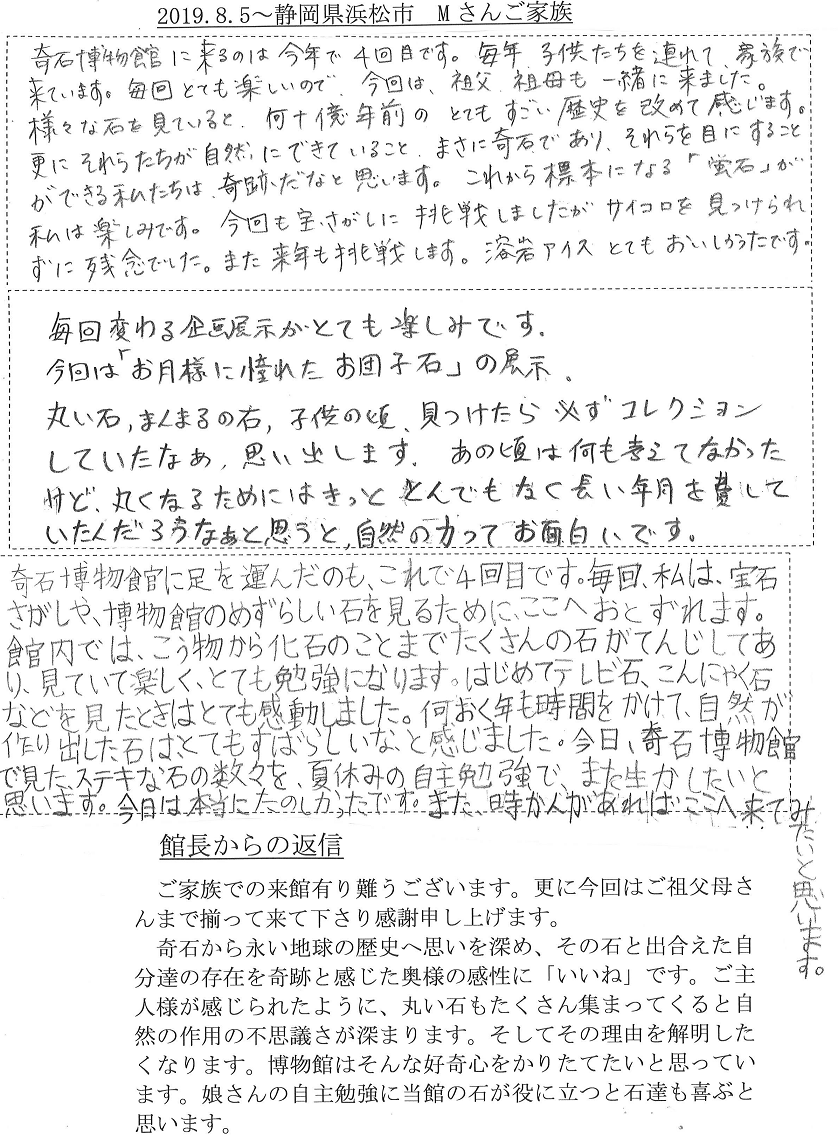 2019.8.5～静岡県浜松市　Mさんご家族
奇石博物館に来るのは今年で4回目です。毎年、子供たちを連れて、家族で
来ています。毎回とても楽しいので、今回は、祖父、祖母も一緒に来ました。
様々な石を見ていると、何十億年前のとてもすごい歴史を改めて感じます。
更にそれらたちが自然にできていること、まさに奇石であり、それらを目にすること
ができる私たちは、奇跡だなと思います。これから標本になる「蛍石」が
私は楽しみです。今回も宝さがしに挑戦しましたがサイコロを見つけられ
ずに残念でした。また来年も挑戦します。溶岩アイスとてもおいしかったです。
毎回変わる企画展示がとても楽しみです。
今回は「お月様に憧れたお団子石」の展示。
丸い石,まんまるの石,子供の頃、見つけたら必ずコレクション
していたなぁ,思い出します。あの頃は何も考えてなかった
けど、丸くなるためにはきっととんでもなく長い年月を費して
いたんだろうなぁと思うと,自然の力ってお面白いです。
奇石博物館に足を運んだのも、これで4回目です。毎回、私は、宝石
さがしや、博物館のめずらしい石を見るために、ここへおとずれます。
館内では、こう物から化石のことまでたくさんの石がてんじしてあ
り、見ていて楽しく、とても勉強になります。はじめてテレビ石、こんにゃく石
などを見たときはとても感動しました。何おく年も時間をかけて、自然が
作り出した石はとてもすばらしいな、と感じました。今日、奇石博物館
で見た、ステキな石の数々を、夏休みの自主勉強で、また生かしたいと
思います。今日は本当にたのしかったです。また、時かんがあればここへ来てみ
たいと思います。
館長からの返信
　ご家族での来館有り難うございます。更に今回はご祖父母さ
んまで揃って来て下さり感謝申し上げます。
　奇石から永い地球の歴史へ思いを深め、その石と出合えた自
分達の存在を奇跡と感じた奥様の感性に「いいね」です。ご主
人様が感じられたように、丸い石もたくさん集まってくると自
然の作用の不思議さが深まります。そしてその理由を解明した
くなります。博物館はそんな好奇心をかりたてたいと思ってい
ます。娘さんの自主勉強に当館の石が役に立つと石達も喜ぶと
思います。